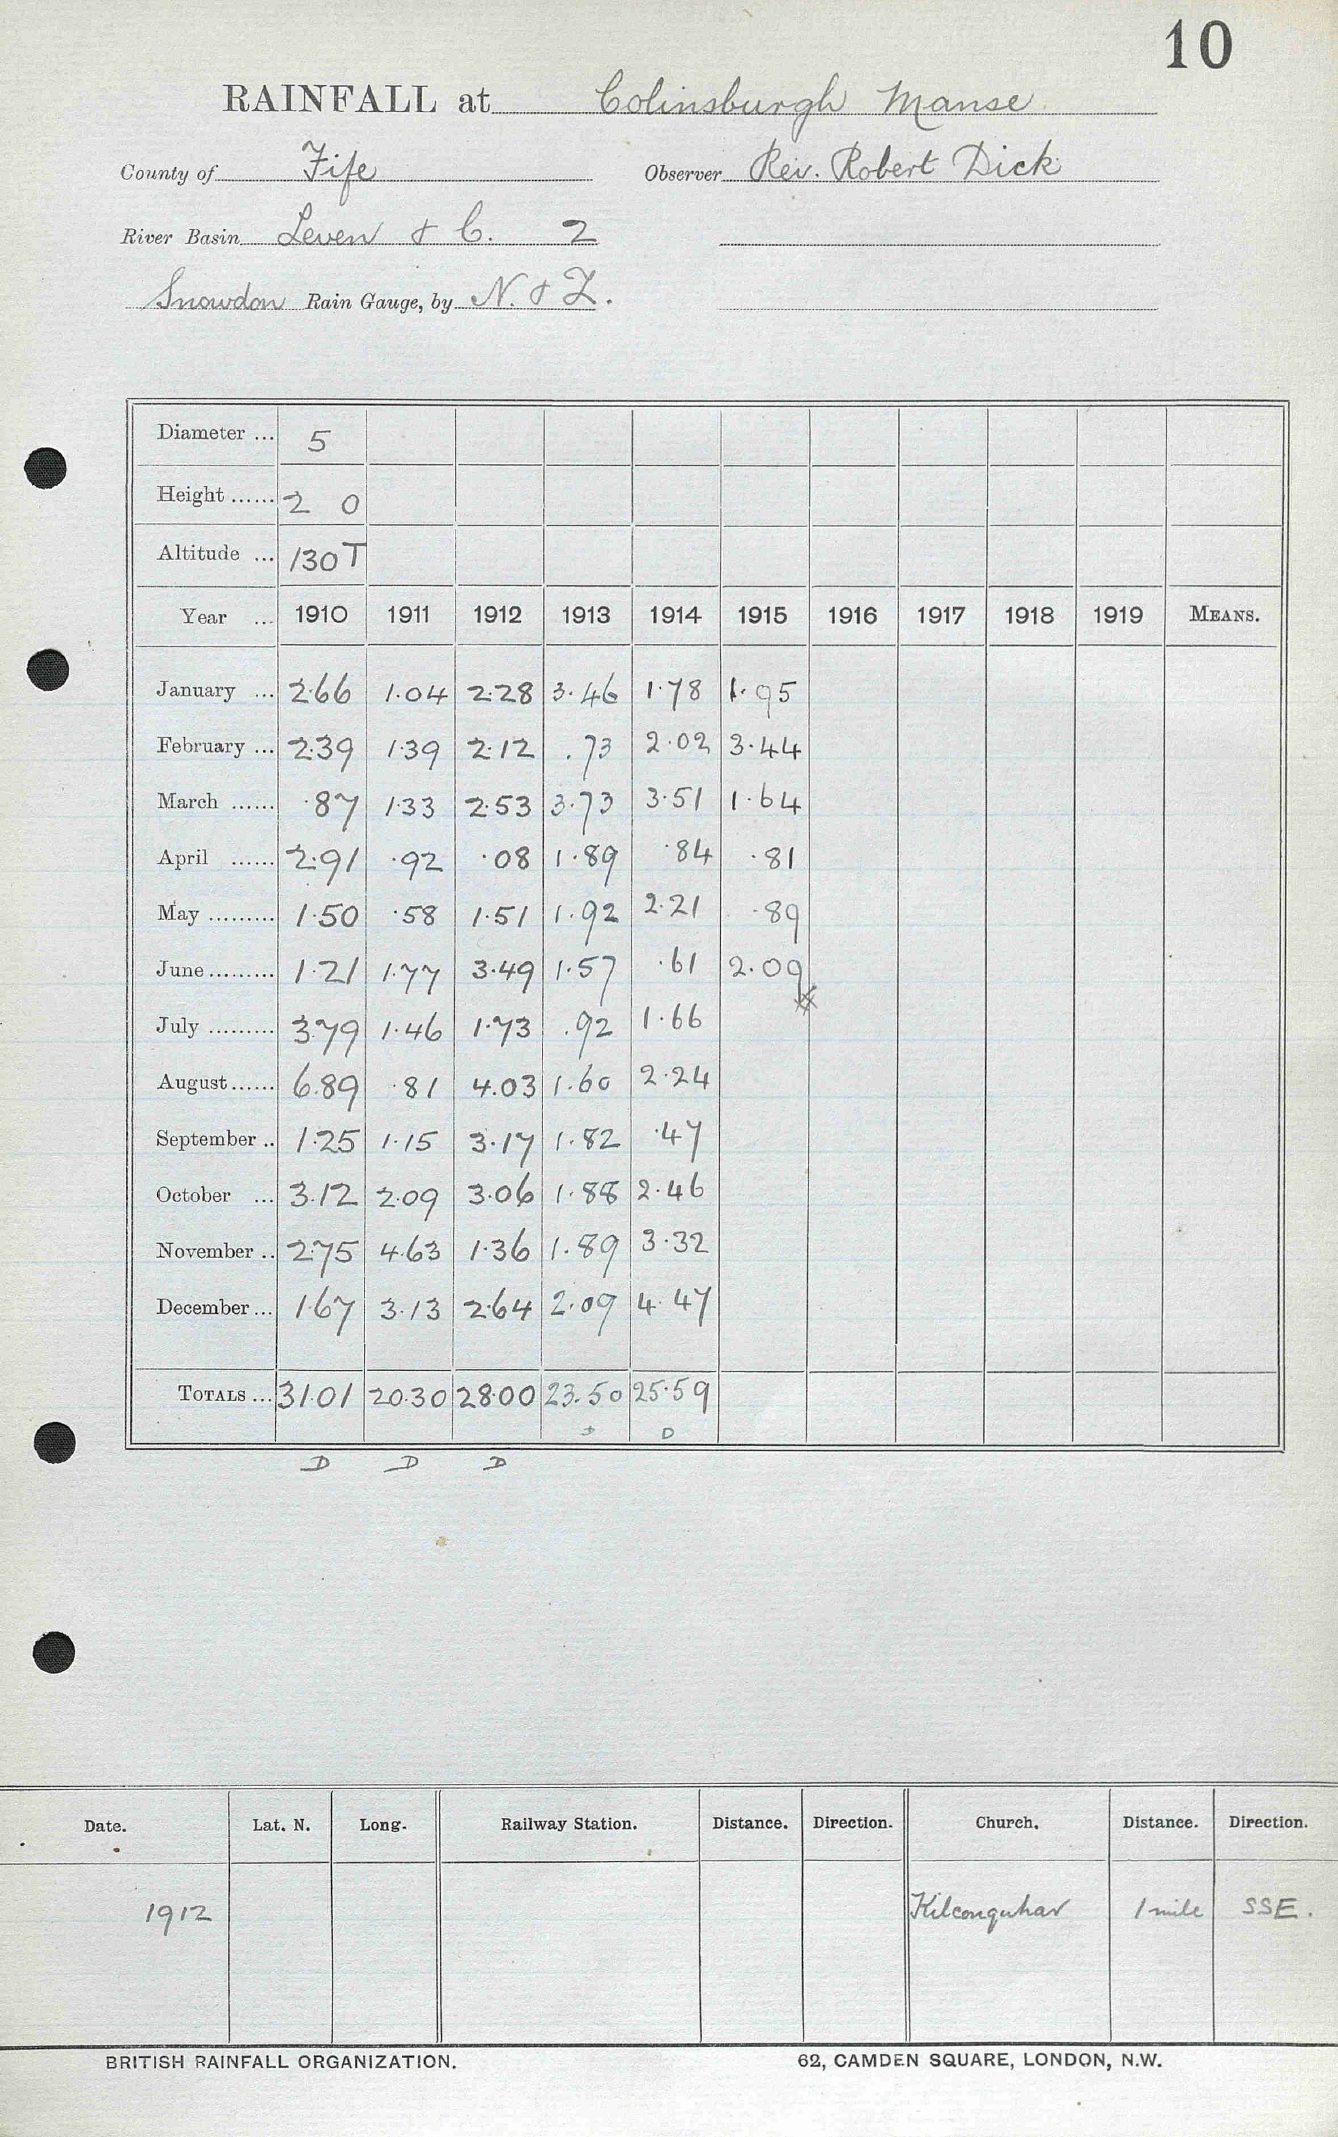 10
RAINFALL at Colinsburgh Manse
County of Fife Observer Rev. Robert Dick
River Basin Leven & C. 2
Snowdon Rain Gauge, by N. & Z.
Diameter ... 5
Height ...... 2 0
Altitude ... 130 T
Year ... 1910 1911 1912 1913 1914 1915 1916 1917 1918 1919 MEANS.
January ... 2.66 1.04 2.28 3.46 1.78 1.95
February ... 2.39 1.39 2.12 .73 2.02 3.44
March ...... .87 1.33 2.53 3.73 3.51 1.64
April ...... 2.91 .92 .08 1.89 .84 .81
May ......... 1.50 .58 1.51 1.92 2.21 .89
June ......... 1.21 1.77 3.49 1.57 .61 2.09
July ......... 3.79 1.46 1.73 .92 1.66
August ...... 6.89 .81 4.03 1.60 2.24
September .. 1.25 1.15 3.17 1.82 .47
October ... 3.12 2.09 3.06 1.88 2.46
November .. 2.75 4.63 1.36 1.89 3.32
December ... 1.67 3.13 2.64 2.09 4.47
TOTALS ... 31.01 20.30 28.00 23.50 25.59
D
D D D
Date. Lat. N. Long. Railway Station. Distance. Direction. Church. Distance. Direction.
1912 Kilconquhar 1 mile SSE.
BRITISH RAINFALL ORGANIZATION. 62, CAMDEN SQUARE, LONDON, N.W.